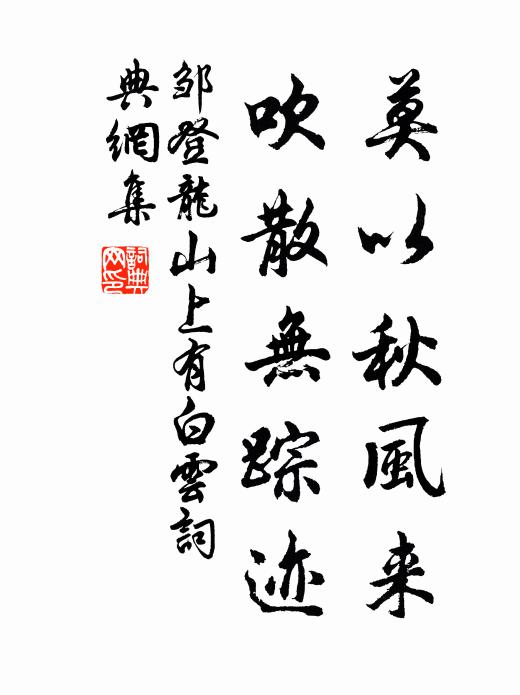 莫以秋風来
吹散無踪迹
邹登龍山上有白雲詞
典網集
詞典网印